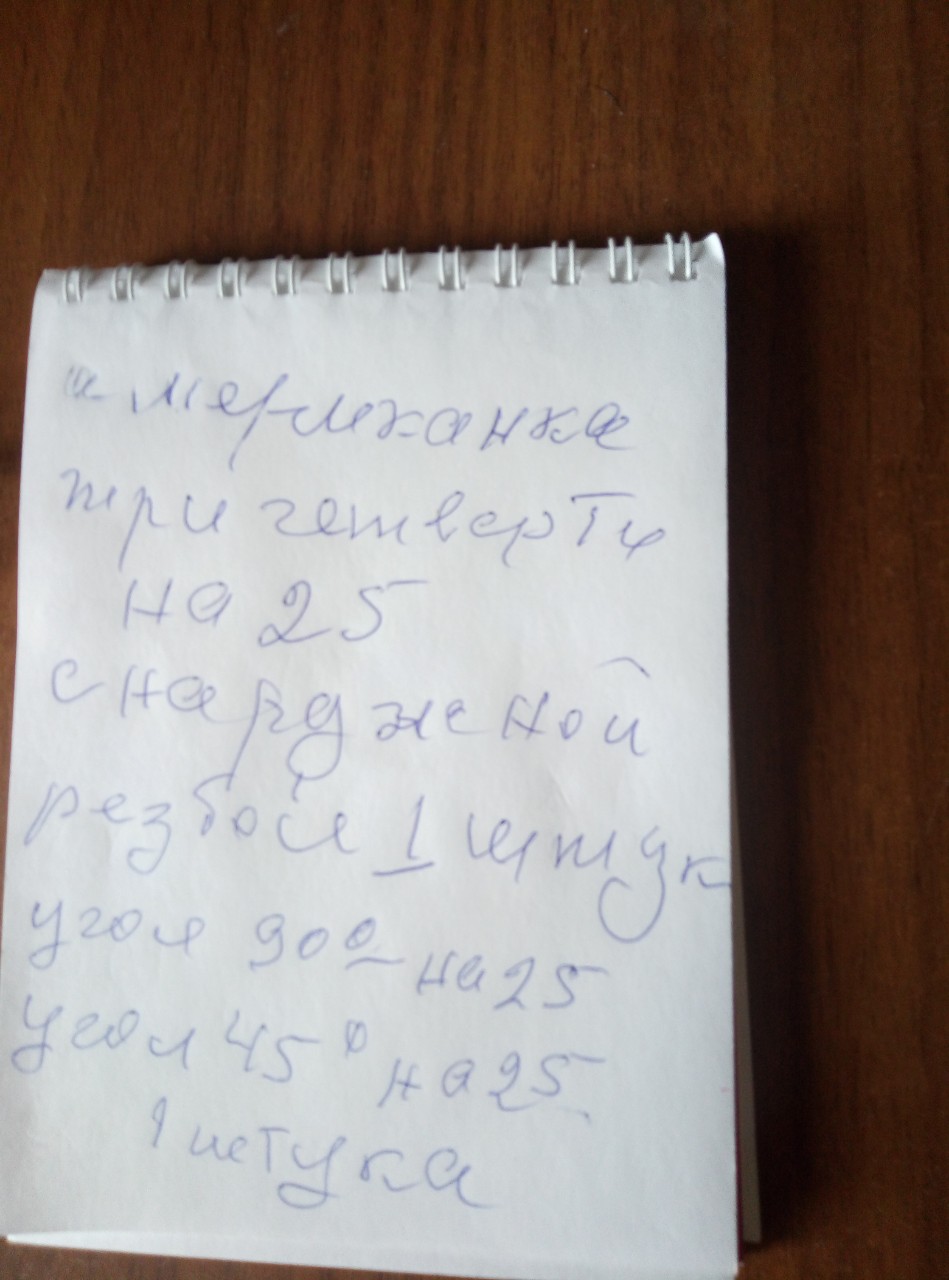 америханка
три четверти
на 25
с нарджной
резбой 1 штук
угол 90° на 25
угол 45° на 25
1 штука